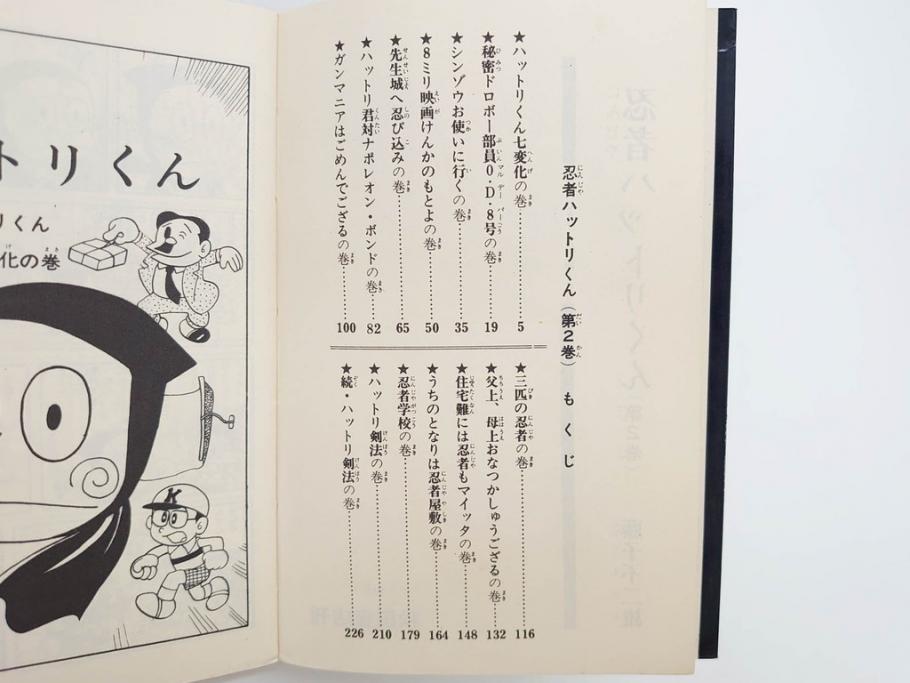 忍者ハットリくん（第2巻） もくじ
★ハットリくん七変化の巻……5
★秘密ドロボー部員0・D・8号の巻……19
★シンゾウお使いに行くの巻……35
★8ミリ映画けんかのもとよの巻……50
★先生城へ忍び込みの巻……65
★ハットリ君対ナポレオン・ボンドの巻……82
★ガンマニアはごめんでござるの巻……100
★三匹の忍者の巻……116
★父上、母上おなつかしゅうござるの巻……132
★住宅難には忍者もマイッタの巻……148
★うちのとなりは忍者屋敷の巻……164
★忍者学校の巻……179
★ハットリ剣法の巻……210
★続・ハットリ剣法の巻……226
トリくん
リくん
化の巻
K